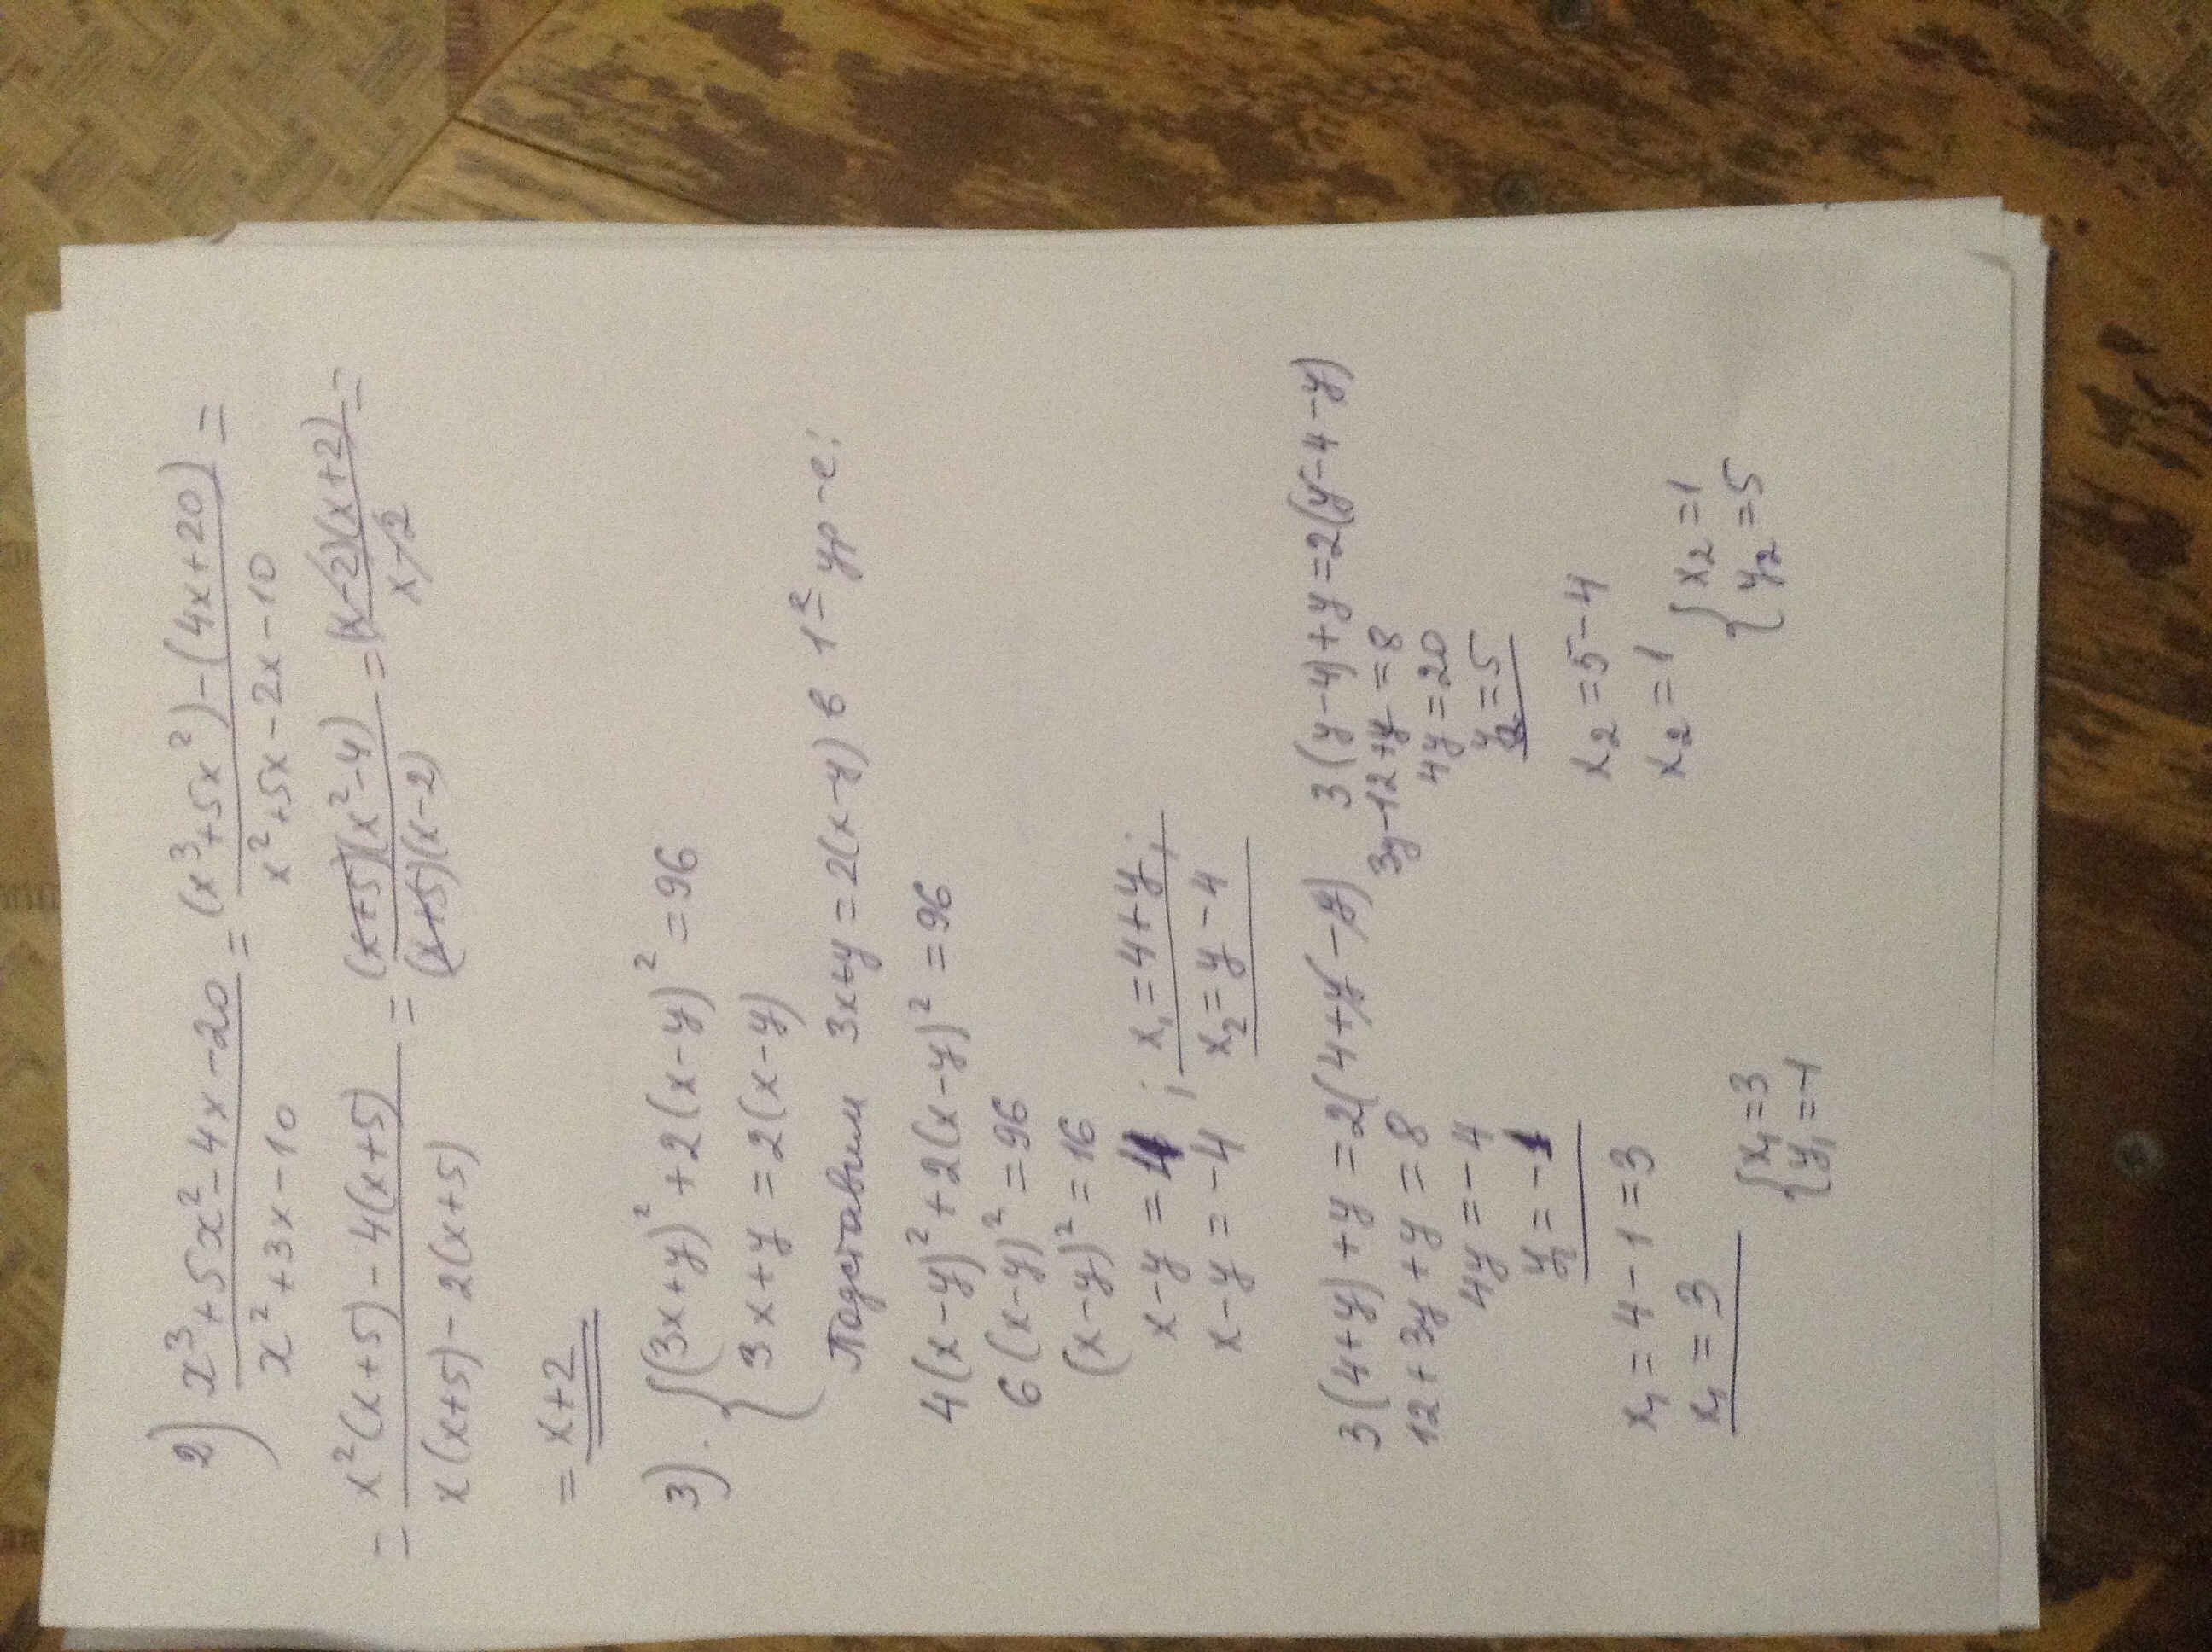 2) x³+5x²-4x-20 / x²+3x-10 = (x³+5x²)-(4x+20) / x²+5x-2x-10 =
= x²(x+5)-4(x+5) / x(x+5)-2(x+5) = (x+5)(x²-4) / (x+5)(x-2) = (x-2)(x+2) / x-2 =
= x+2
3). { (3x+y)²+2(x-y)²=96
3x+y=2(x-y)
Подставим 3x+y=2(x-y) в 1е ур-е:
4(x-y)²+2(x-y)²=96
6(x-y)²=96
(x-y)²=16
x-y=4 ; x₁=4+y;
x-y=-4 ; x₂=y-4
3(4+y)+y=2(4+y-y) 3(y-4)+y=2(y-4-y)
12+3y+y=8 3y-12+y=8
4y=-4 4y=20
y₁=-1 y₂=5
x₁=4-1=3 x₂=5-4
x₁=3 x₂=1
{ x₁=3 { x₂=1
y₁=-1 y₂=5